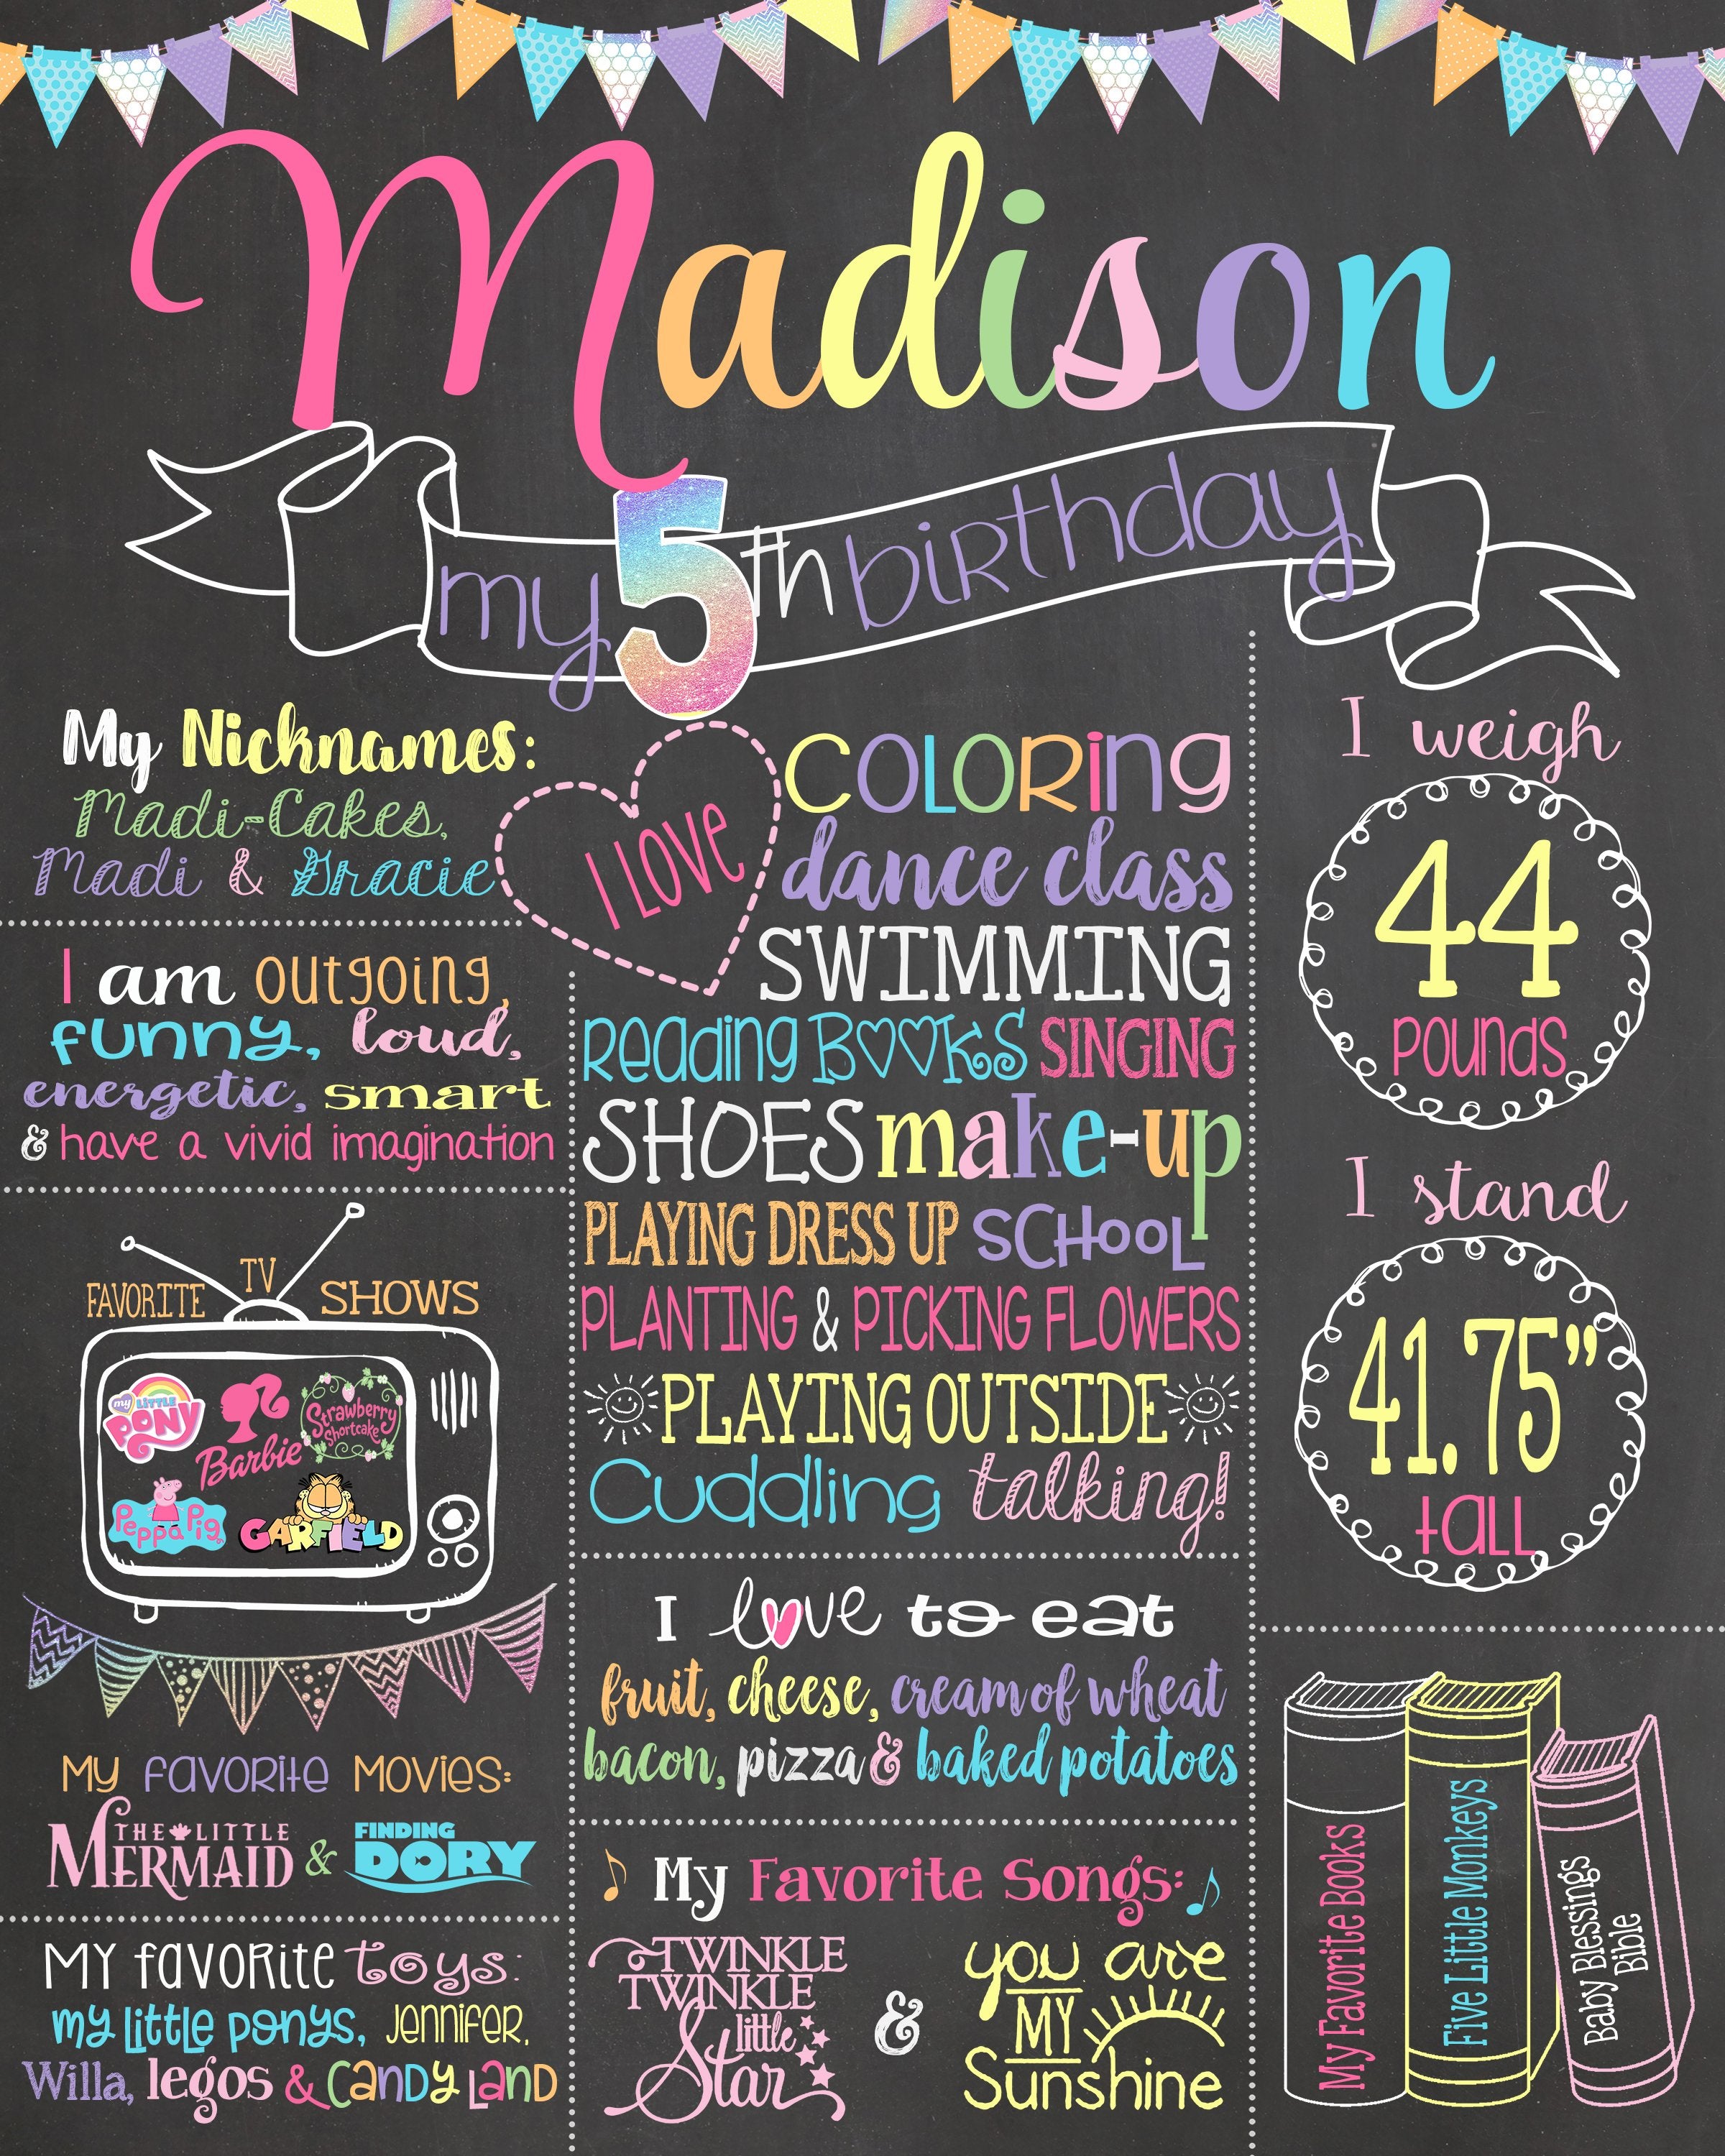 Madison
my 5th birthday
My Nicknames:
Madi-Cakes,
Madi & Gracie
I am outgoing,
funny, loud,
energetic, smart
& have a vivid imagination
FAVORITE TV SHOWS
my LITTLE
PONY
Barbie
Strawberry
Shortcake
Peppa Pig
GARFIELD
MY FAVORITE MOVIES:
THE LITTLE
MERMAID
&
FINDING
DORY
MY FAVORITE toys:
my little ponys, Jennifer,
Willa, legos & CANDY LAND
I LOVE
COLORING
dance class
SWIMMING
Reading BOOKS SINGING
SHOES make-up
PLAYING DRESS UP SCHOOL
PLANTING & PICKING FLOWERS
PLAYING OUTSIDE
Cuddling talking!
I love to eat
fruit, cheese, cream of wheat
bacon, pizza & baked potatoes
My Favorite Songs:
TWINKLE
TWINKLE
little
Star
&
you are
MY
Sunshine
I weigh
44
pounds
I stand
41.75”
tall
My Favorite Books
Five Little Monkeys
Baby Blessings
Bible